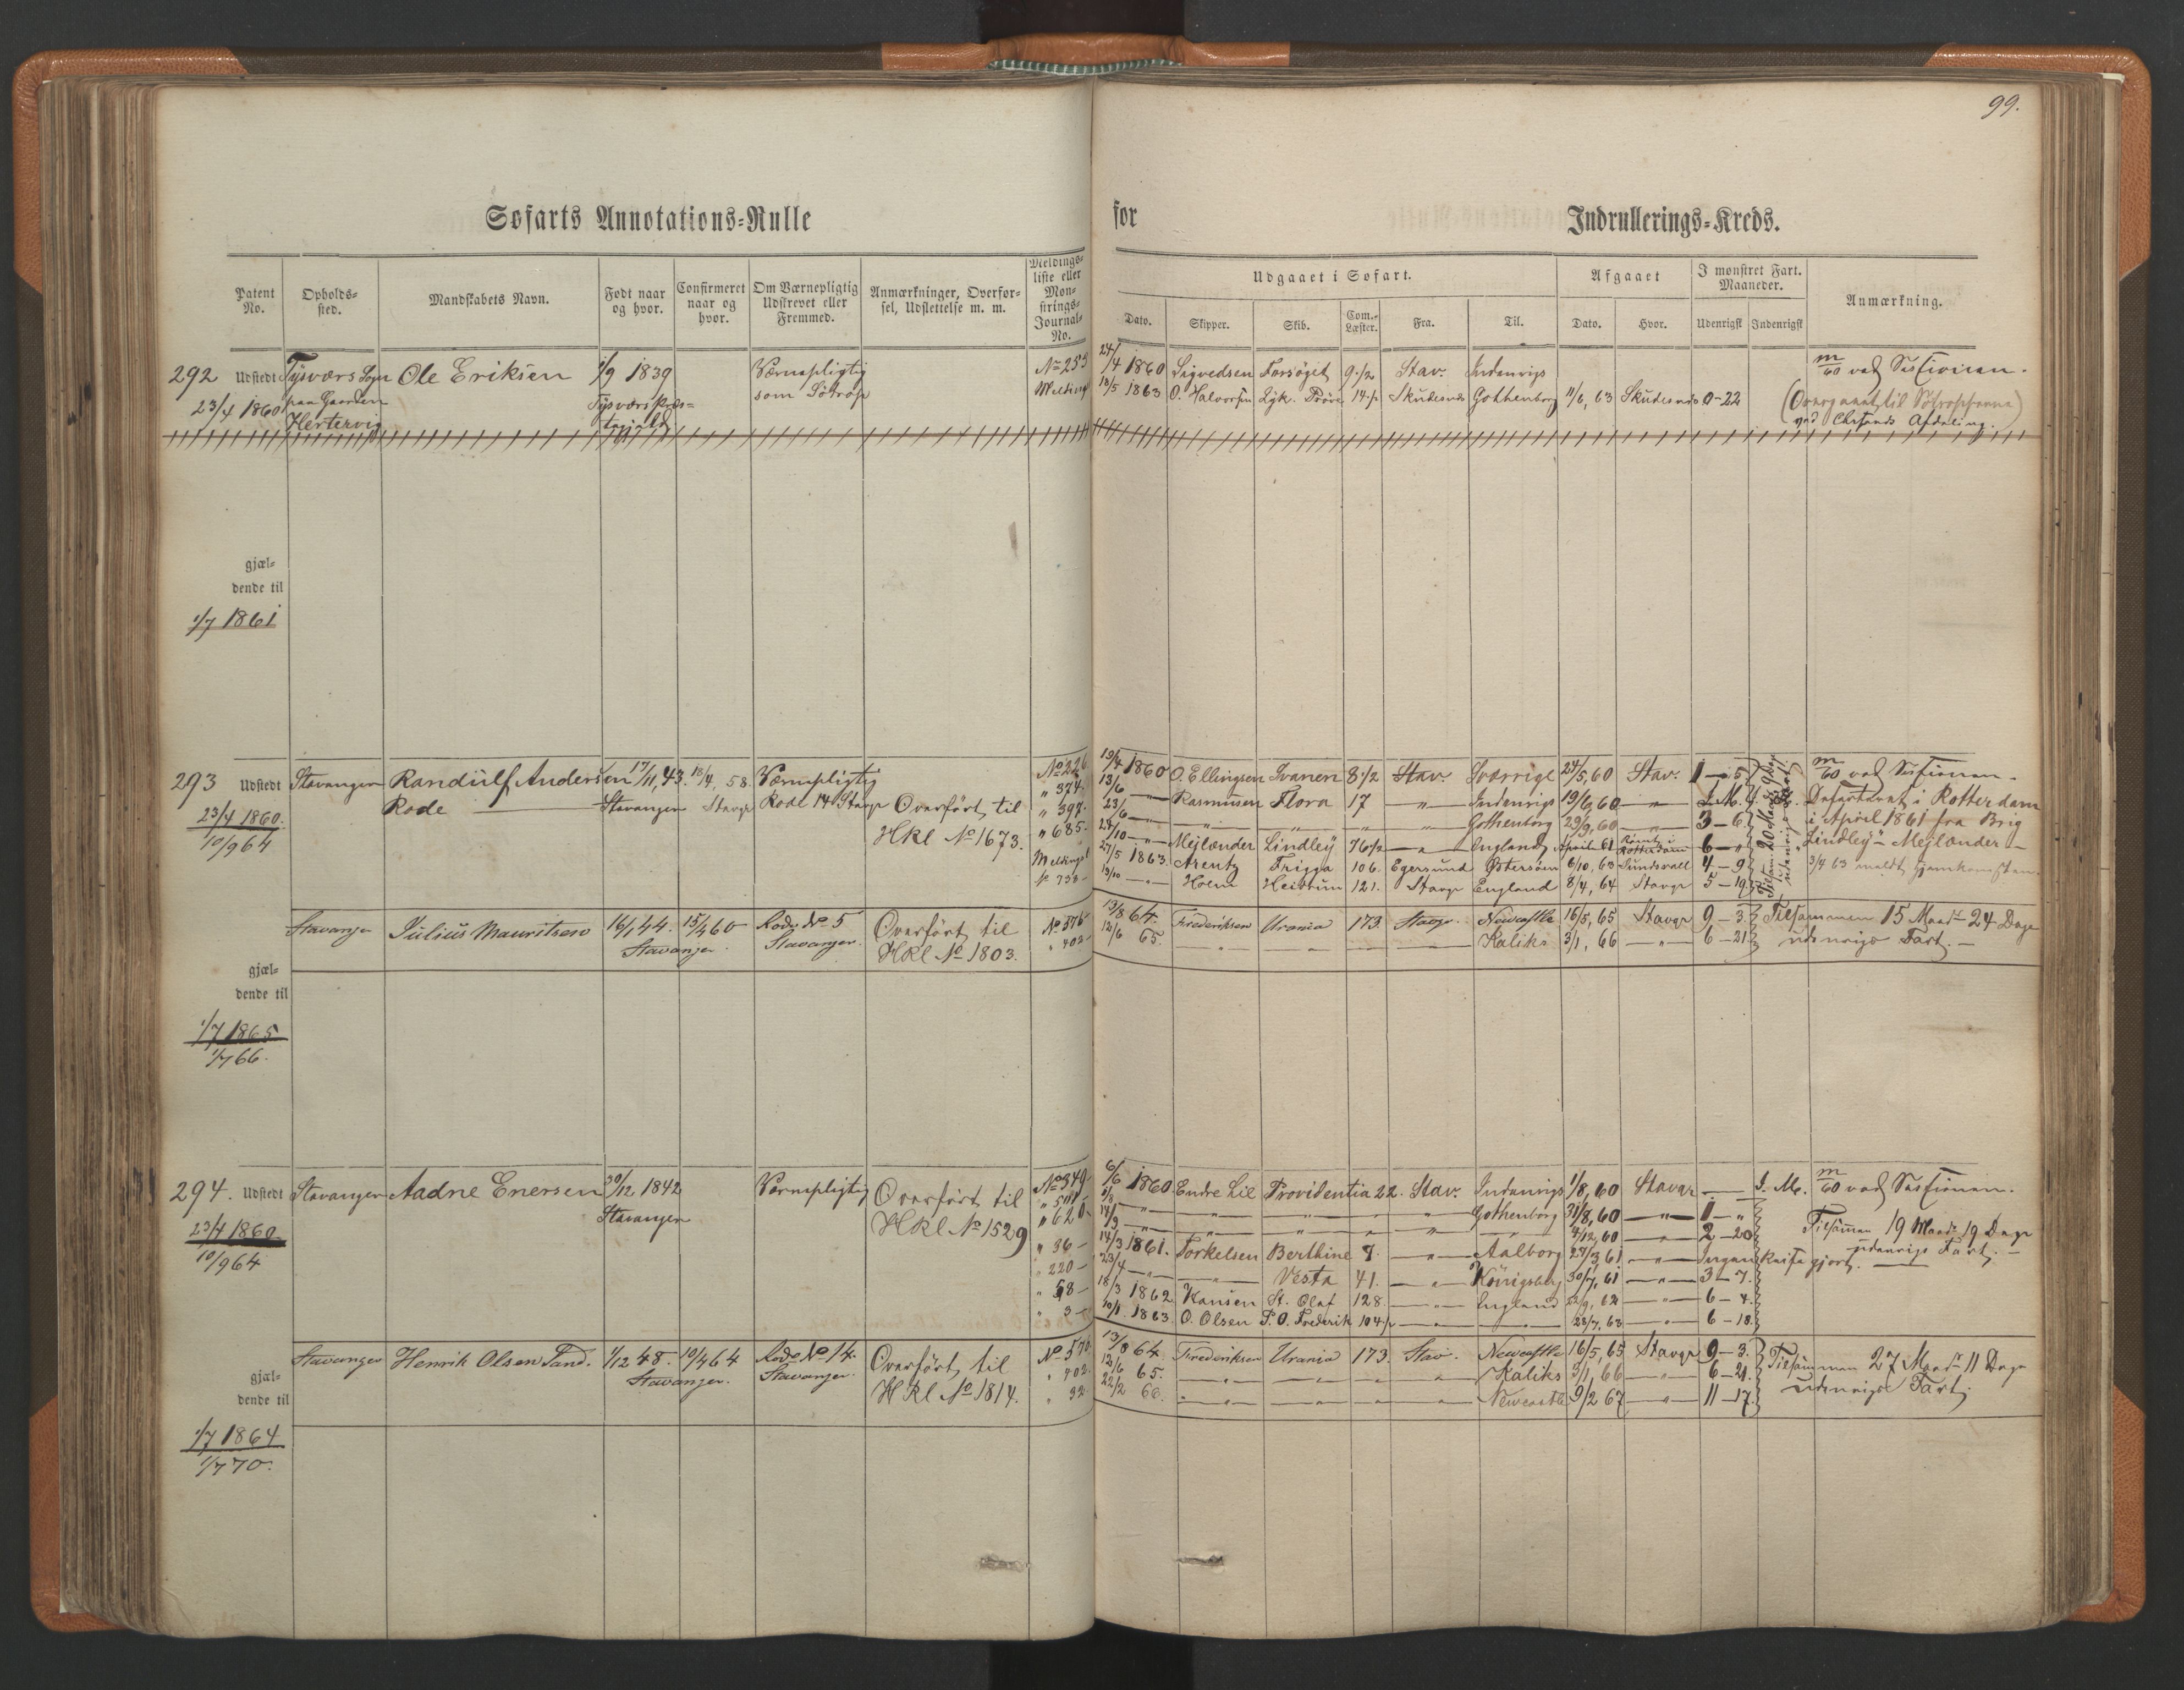 99.
Søfarts Annotations-Rulle
for
Indrullerings-Kreds.
Patent No.
Opholds-sted.
Mandskabets Navn.
Født naar og hvor.
Confirmeret naar og hvor.
Om Værnepligtig Udskrevet eller Fremmed.
Anmærkninger, Overførsel, Udslettelse m. m.
Meldings-liste eller Mønstrings-Journal-No.
Udgaaet i Søfart.
Afgaaet
I mønstret Fart. Maaneder.
Anmærkning.
Dato.
Skipper.
Skib.
Com.-Læster.
Fra.
Til.
Dato.
Hvor.
Udenrigst
Indenrigst
292 Udstedt Tysvær Sogn Ole Eriksen 1/9 1839 Værnepligtig No 253 24/4 1860 Sigvedsen Forsøget 9 1/2 Stav. Indenrigs
23/4 1860 paa Gaarden Tysvær Præs- som Søtrop Melding 18/5 1863 O. Halvorsen Prøve Skudesnes Gothenborg 11/6, 63 Skudesnes 0-22
Hertervig tegjeld
gjæl-
dende til
1/7 1861
293 Udstedt Stavanger Randulf Andersen 17/11, 43. 18/4, 58 Værnepligtig No 226 19/4 1860 O. Ellingsen Svanen 8 1/2 Stav. Sverrige 24/5, 60 Stav. 1-5
23/4 1860. Rode Stavanger Stavgr Rode 14 Stavgr Overført til " 374. 13/6 —"— Rasmussen Flora 17 —"— Indenrigs 19/6, 60 —"— I. M. Deserteret i Rotterdam
10/9 64 HKl No 1673. " 397. 23/6 —"— Gothenborg 29/9, 60 —"— 3-6 i April 1861 fra Brig
" 685. 24/10 —"— Mejlænder Lindley 76 1/2 —"— England April 61 Rotterdam 6-" "Lindley" - Mejlænder -
27/5 1863. Arentz Frigga 106. Egersund Østersøen 6/10, 63 Sundsvall 4-9
No 738- 13/10 —"— Holm Heidrun 121. Stavgr England 8/4, 64 Stavgr 5-19
Stavanger Julius Mauritsen 16/1 44. 15/4 60 Rode No 5 Overført til No 576 13/8 64. Frederiksen Urania 173. Stavgr. Newcastle 16/5, 65 Stavgr 9-3. Tilsammen 15 Maadr 24 Dage
Stavanger. Stavanger. HKl No 1803. " 402. 12/6 65. Kaliks 3/1, 66 —"— 6-21. udenrigs Fart. -
gjæl-
dende til
1/7 1865
1/7 66.
294. Udstedt Stavanger Aadne Enersen 30/12 1842 Værnepligtig Overført til No 349. 6/6 1860 Endre Lie Providentia 22. Stav. Indenrigs 1/8, 60 Stavgr — I. M.
23/4 1860. Stavanger HKl No 1529 Gothenborg 31/8, 60 —"— 1-"
10/9 64 " 620. 14/9 —"— 4/12, 60 —"— 2-20 Tilsammen 19 Maadr 19 Dage
" 36- 14/3 1861. Torkelsen Berthine 7. —"— Aalborg 27/3, 61 —"— Ingen Reise gjort. udenrigs Fart. -
" 220- 23/4 —"— Vesta 41. —"— Königsberg 30/7, 61 —"— 3-7.
18/3 1862 Hansen St. Olaf 128. —"— England —"— 6-4.
" 3- 10/1. 1863. O. Olsen P. O. Frederik 104 1/2 —"— 28/7, 63 —"— 6-18.
gjæl-
dende til
1/7 1864
1/7 70.
Stavanger Henrik Olsen Tand. 1/12 48. 10/4 64 Rode No 14. Overført til No 576. 13/8 64. Frederiksen Urania 173. Stav. Newcastle 16/5, 65 Stavgr 9-3. Tilsammen 27 Maadr 11 Dage
Stavanger. Stavanger. HKl No 1814. " 402. 12/6 65. Kaliks 3/1, 66 —"— 6-21. udenrigs Fart.
" 32. 22/2 66. Newcastle 9/2 67 —"— 11-17.